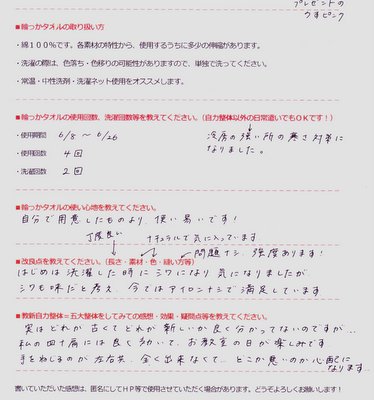 プレゼントの
うすピンク
■輪っかタオルの取り扱い方
・綿100%です。各素材の特性から、使用するうちに多少の伸縮があります。
・洗濯の際は、色落ち・色移りの可能性がありますので、単独で洗ってください。
・常温・中性洗剤・洗濯ネット使用をオススメします。
■輪っかタオルの使用回数、洗濯回数等を教えてください。(自力整体以外の日常遣いでもOKです!)
・使用期間 6/8 〜 6/26
冷房の強い所の寒さ対策に
なりました。
・使用回数 4回
・洗濯回数 2回
■輪っかタオルの使い心地を教えてください。
自分で用意したものより、使い易いです!
丁度良い ナチュラルで気に入っています
問題ナシ、強度あります!
■改良点を教えてください。(長さ・素材・色・縫い方等)
はじめは洗濯した時にシワになり気になりましたが
シワも味だと考え、今ではアイロンナシで満足しています
■教新自力整体=五大整体をしてみての感想・効果・疑問点等を教えてください。
実はどれが古くてどれが新しいか良く分かってないのですが‥
私の四十肩には良く効いて、お教室の日が楽しみです
手をねじるのが左右共、全く出来なくて‥どこか悪いのか心配に
なります
書いていただいた感想は、匿名にしてHP等で使用させていただく場合があります。どうぞよろしくお願いします!